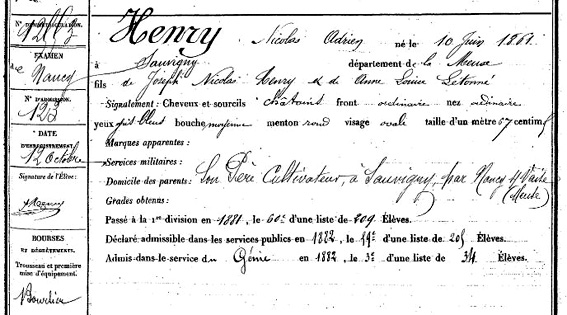 N° D'IMMATRICULATION
EXAMEN
de Nancy
N° D'ADMISSION
123
DATE
D'ENREGISTREMENT
12 Octobre
Signature de l'Élève:
BOURSES
ET DÉGRÈVEMENTS.
Trousseau et première
mise d'équipement.
Boursier
Henry Nicolas Adrien né le 10 Juin 1861
à Sauvigny département de la Meuse
fils de Joseph Nicolas Henry et de Anne Louise Letonné
Signalement: Cheveux et sourcils châtains front ordinaire nez ordinaire
yeux bleus bouche moyenne menton rond visage ovale taille d'un mètre 67 centim.
Marques apparentes:
Services militaires:
Domicile des parents: Son Père Cultivateur, à Sauvigny, par
(Meuse)
Grades obtenus:
Passé à la 1re division en 1881, le 60e d'une liste de 209 Élèves.
Déclaré admissible dans les services publics en 1882, le 19e d'une liste de 205 Élèves.
Admis dans le service du Génie en 1882, le 3e d'une liste de 34 Élèves.